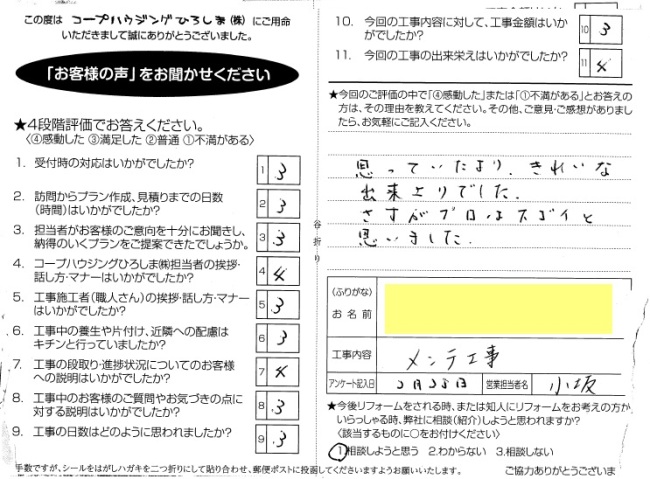 この度は コープハウジングひろしま(株) にご用命
いただきまして誠にありがとうございました。
「お客様の声」をお聞かせください
★4段階評価でお答えください。
〈④感動した ③満足した ②普通 ①不満がある〉
1. 受付時の対応はいかがでしたか?
1 3
2. 訪問からプラン作成、見積りまでの日数
(時間)はいかがでしたか?
2 3
3. 担当者がお客様のご意向を十分にお聞きし、
納得のいくプランをご提案できたでしょうか。
3 3
4. コープハウジングひろしま㈱担当者の挨拶・
話し方・マナーはいかがでしたか?
4 4
5. 工事施工者(職人さん)の挨拶・話し方・マナー
はいかがでしたか?
5 3
6. 工事中の養生や片付け、近隣への配慮は
キチンと行っていましたか?
6 3
7. 工事の段取り・進捗状況についてのお客様
への説明はいかがでしたか?
7 4
8. 工事中のお客様のご質問やお気づきの点に
対する説明はいかがでしたか?
8 3
9. 工事の日数はどのように思われましたか?
9 3
手数ですが、シールをはがしハガキを二つ折りにして貼り合わせ、郵便ポストに投函してくださいますようお願いいたします。
谷折り
10. 今回の工事内容に対して、工事金額はいか
がでしたか?
10 3
11. 今回の工事の出来栄えはいかがでしたか?
11 4
★今回のご評価の中で「④感動した」または「①不満がある」とお答えの
方は、その理由を教えてください。その他、ご意見・ご感想がありまし
たら、お気軽にご記入ください。
思っていたより、きれいな
出来上りでした.
さすがプロはスゴイと
思いました.
(ふりがな)
お名前
工事内容
メンテ工事
アンケート記入日
営業担当者名
小坂
★今後リフォームをされる時、または知人にリフォームをお考えの方が
いらっしゃる時、弊社に相談(紹介)しようと思われますか?
〈該当するものに○をお付けください〉
1.相談しようと思う 2.わからない 3.相談しない
ご協力ありがとうございま